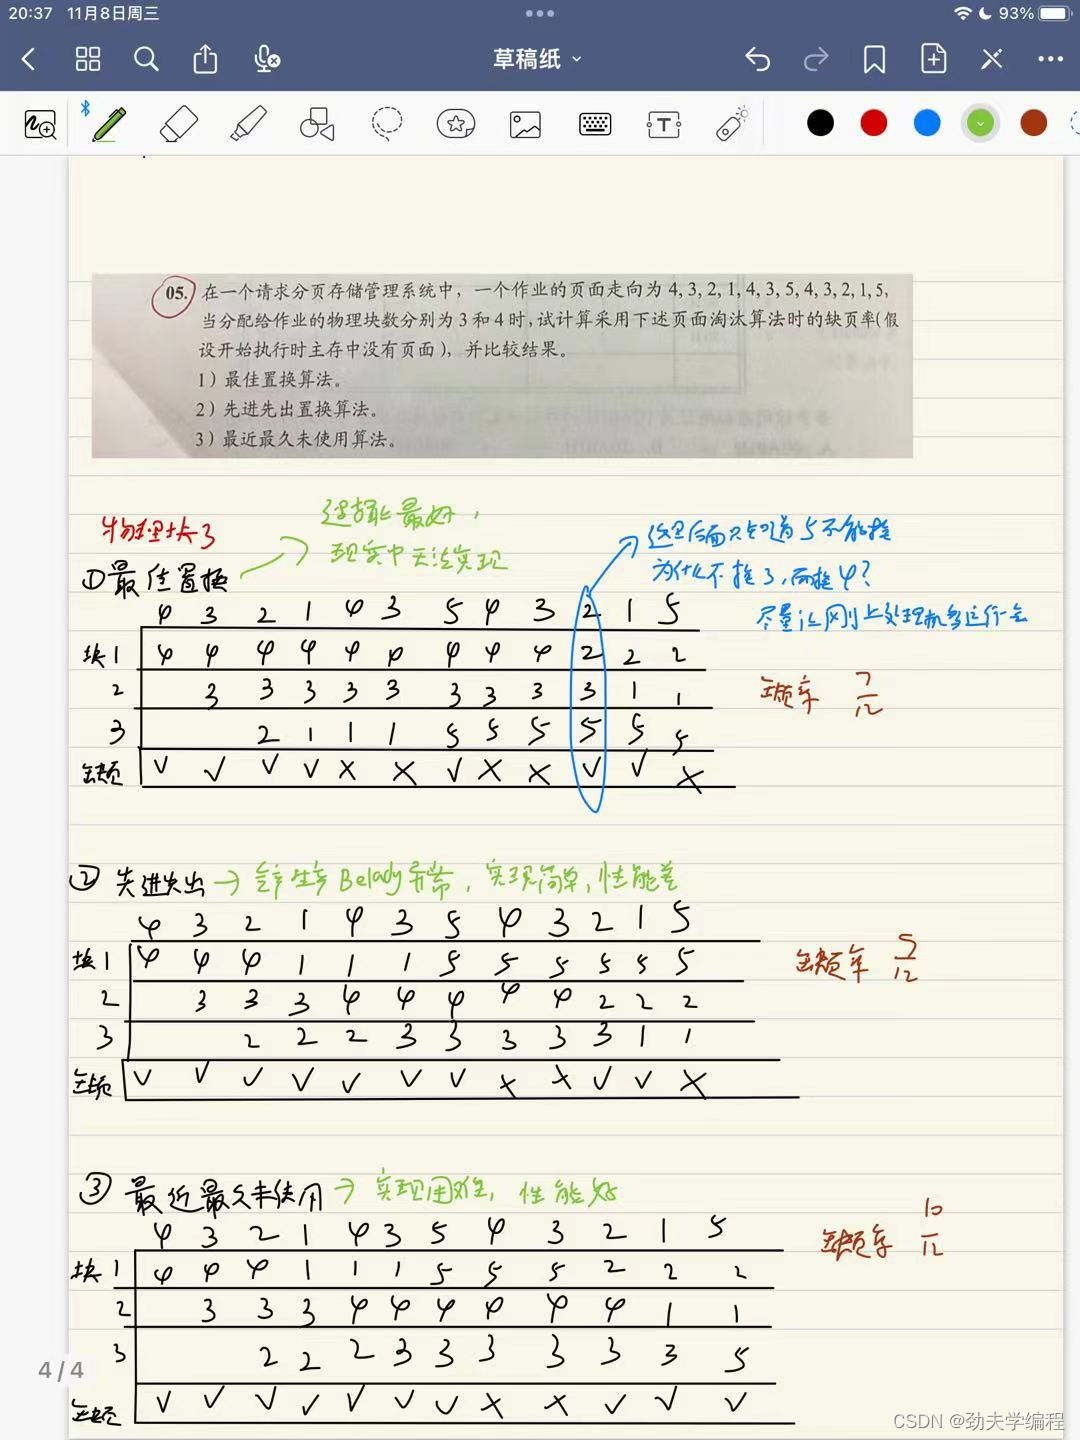 20:37 11月8日周三
93%
草稿纸
05. 在一个请求分页存储管理系统中，一个作业的页面走向为 4, 3, 2, 1, 4, 3, 5, 4, 3, 2, 1, 5,
当分配给作业的物理块数分别为 3 和 4 时,试计算采用下述页面淘汰算法时的缺页率(假
设开始执行时主存中没有页面)，并比较结果。
1）最佳置换算法。
2）先进先出置换算法。
3）最近最久未使用算法。
物理块3
逻辑上最好，
现实中无法实现
①最佳置换
这里后面只知道5不能换
为什么不换3，而换4?
尽量让刚上处理机多运行一会
4 3 2 1 4 3 5 4 3 2 1 5
块1 4 4 4 4 4 4 4 4 4 2 2 2
2 3 3 3 3 3 3 3 3 3 1 1
3 2 1 1 1 5 5 5 5 5 5
缺页 √ √ √ √ X X √ X X √ √ X
缺页率 7/12
②先进先出 → 会产生Belady异常，实现简单，性能差
4 3 2 1 4 3 5 4 3 2 1 5
块1 4 4 4 1 1 1 5 5 5 5 5 5
2 3 3 3 4 4 4 4 4 2 2 2
3 2 2 2 3 3 3 3 3 1 1
缺页 √ √ √ √ √ √ √ X X √ √ X
缺页率 9/12
③最近最久未使用 → 实现困难，性能好
4 3 2 1 4 3 5 4 3 2 1 5
块1 4 4 4 1 1 1 5 5 5 2 2 2
2 3 3 3 4 4 4 4 4 4 1 1
3 2 2 2 3 3 3 3 3 3 5
缺页 √ √ √ √ √ √ √ X X √ √ √
缺页率 10/12
4 / 4
CSDN @劲夫学编程